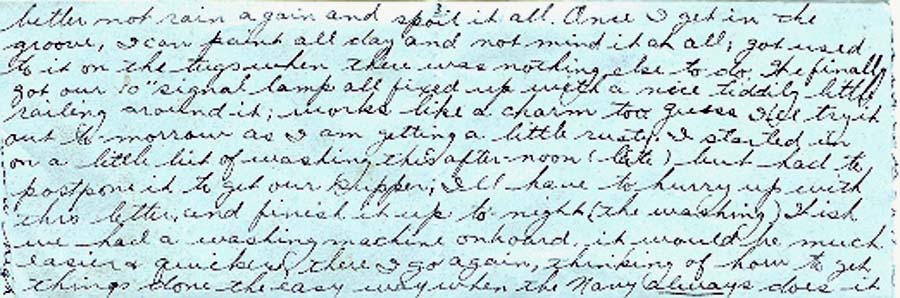 better not rain again and spoil it all. Once I get in the
groove, I can paint all day and not mind it at all; got used
to it on the tugs when there was nothing else to do. We finally
got our 10" signal lamp all fixed up with a nice tiddily little
railing around it; works like a charm too guess I'll try it
out to-morrow as I am getting a little rusty. I started in
on a little bit of washing this after-noon (late) but had to
postpone it to get our supper; I'll have to hurry up with
this letter, and finish it up to night (the washing) Wish
we had a washing machine onboard, it would be much
easier & quicker, there I go again, thinking of how to get
things done the easy way when the Navy always does it